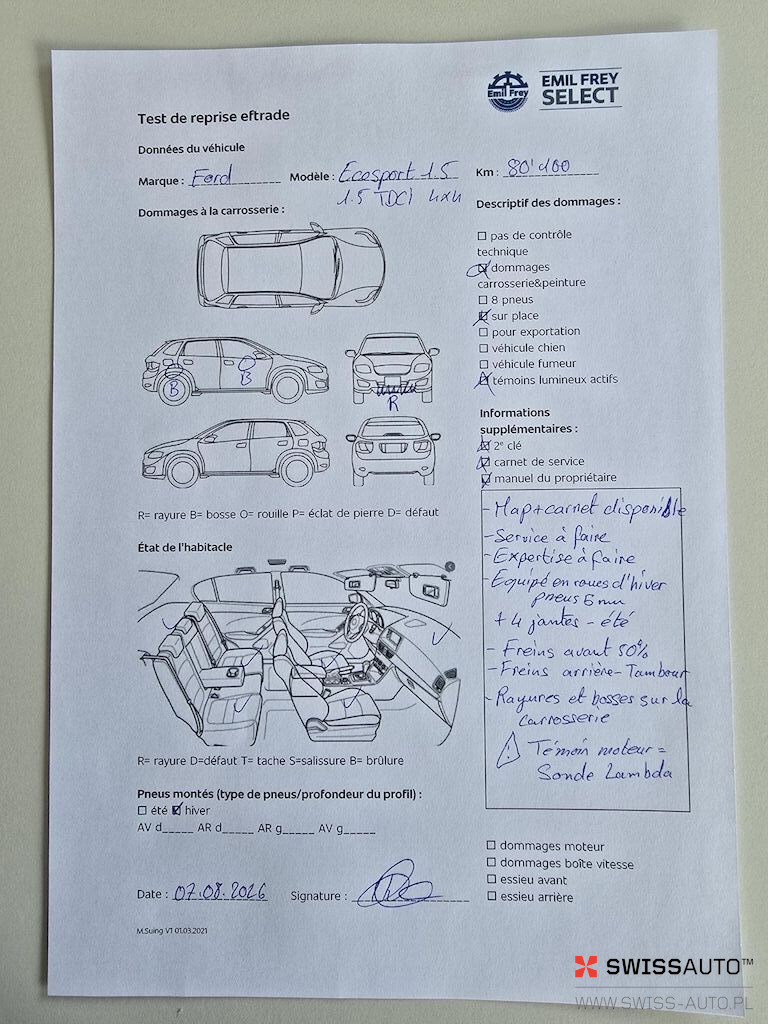 Emil Frey
EMIL FREY
SELECT
Test de reprise eftrade
Données du véhicule
Marque : Ford Modèle : Ecosport 1.5 Km : 80'100
1.5 TDCi 4x4
Dommages à la carrosserie :
Descriptif des dommages :
pas de contrôle
technique
dommages
carrosserie&peinture
8 pneus
sur place
pour exportation
véhicule chien
véhicule fumeur
témoins lumineux actifs
B
B
R
Informations
supplémentaires :
2e clé
carnet de service
manuel du propriétaire
R= rayure B= bosse O= rouille P= éclat de pierre D= défaut
- Map+carnet disponible
- Service à faire
- Expertise à faire
- Equipé en roues d'hiver
pneus 6 mm
+ 4 jantes - été
- Freins avant 50%
- Freins arrière - Tambour
- Rayures et bosses sur la
carrosserie
! Témoin moteur =
Sonde Lambda
État de l'habitacle
R= rayure D=défaut T= tache S=salissure B= brûlure
Pneus montés (type de pneus/profondeur du profil) :
été hiver
AV d_____ AR d_____ AR g_____ AV g_____
dommages moteur
dommages boîte vitesse
essieu avant
essieu arrière
Date : 07.08.2026 Signature :
M.Suing V1 01.03.2021
SWISSAUTO™
WWW.SWISS-AUTO.PL